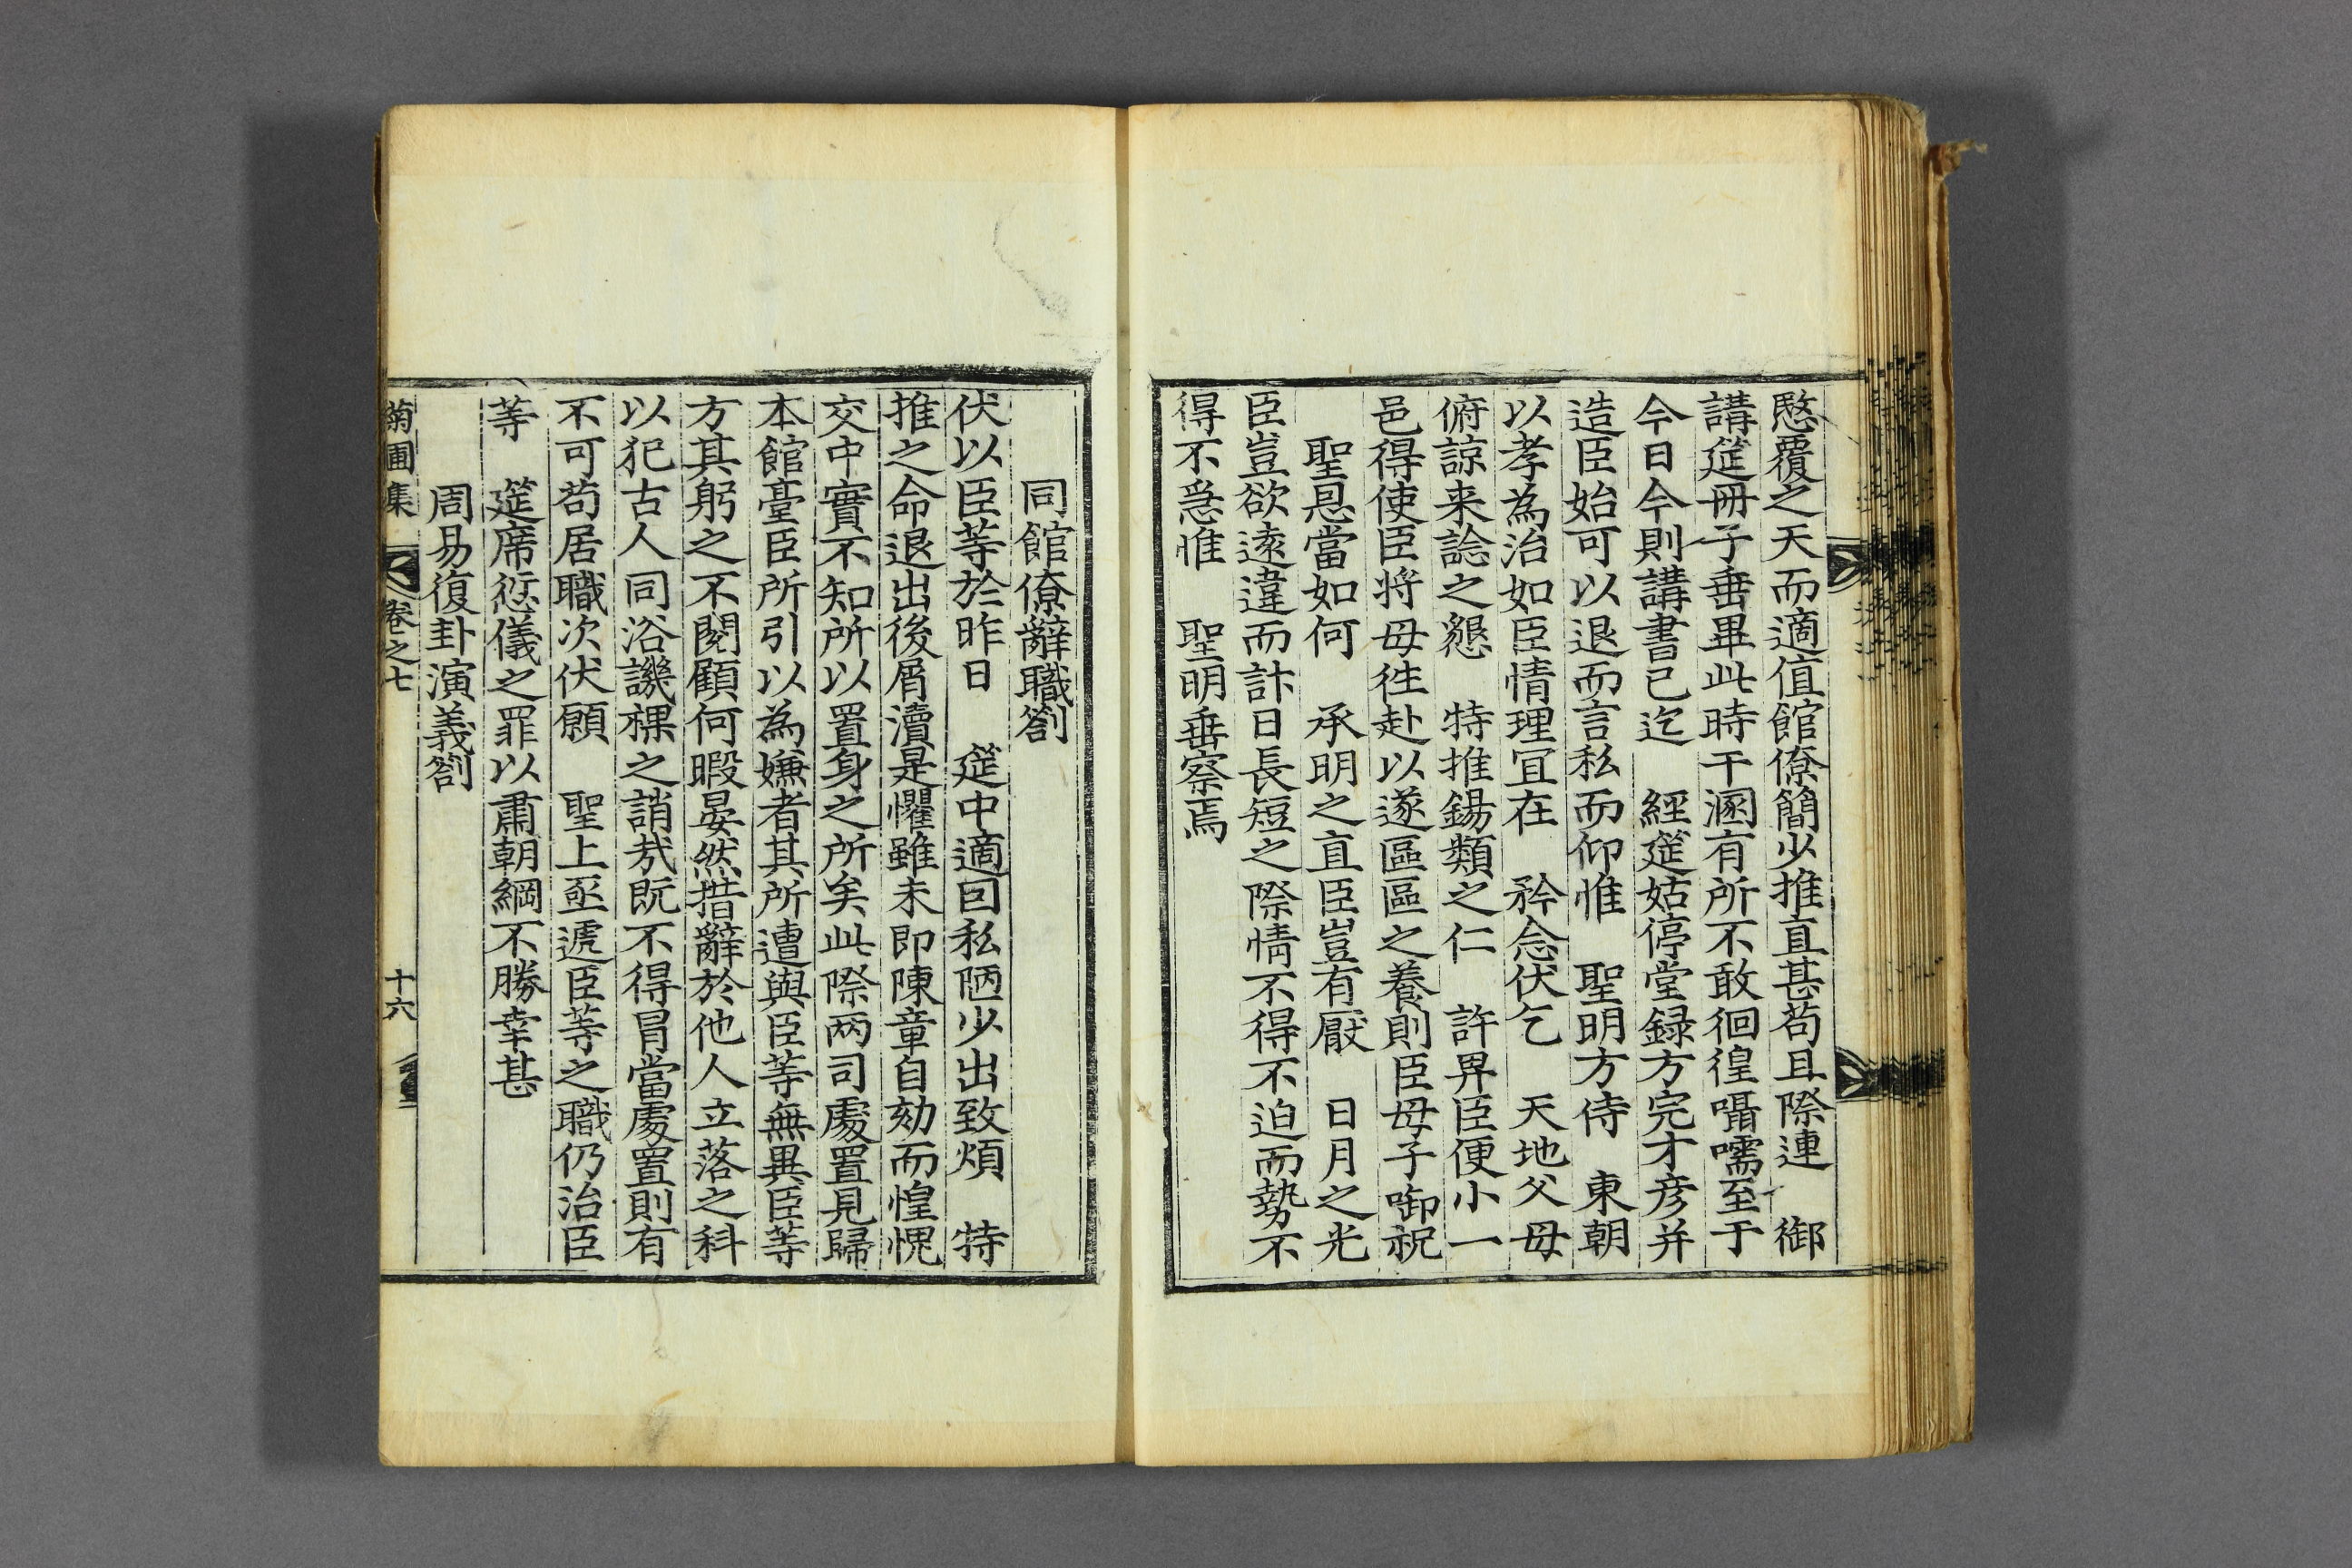 愍覆之天而適值館僚簡少推直甚苟且際連　御
講筵冊子垂畢此時干溷有所不敢徊徨囁嚅至于
今日今則講書已迄　經筵姑停堂録方完才彦并
造臣始可以退而言私而仰惟　聖明方侍　東朝
以孝為治如臣情理冝在　矜念伏乞　天地父母
俯諒来諗之懇　特推錫類之仁　許畀臣便小一
邑得使臣將母徃赴以遂區區之養則臣母子啣祝
　聖恩當如何　承明之直臣豈有厭　日月之光
臣豈欲遠違而計日長短之際情不得不迫而勢不
得不急惟　聖明垂察焉
同館僚辭職劄
伏以臣等於昨日　筵中適囙私陋少出致煩　特
推之命退出後屑瀆是懼雖未即陳章自劾而惶愧
交中實不知所以置身之所矣此際兩司處置見歸
本館臺臣所引以為嫌者其所遭與臣等無異臣等
方其躬之不閱顧何暇晏然措辭於他人立落之科
以犯古人同浴譏裸之誚㢤既不得冒當處置則有
不可苟居職次伏願　聖上亟遞臣等之職仍治臣
等　筵席愆儀之罪以肅朝綱不勝幸甚
周易復卦演義劄
菊圃集　卷之七　十六